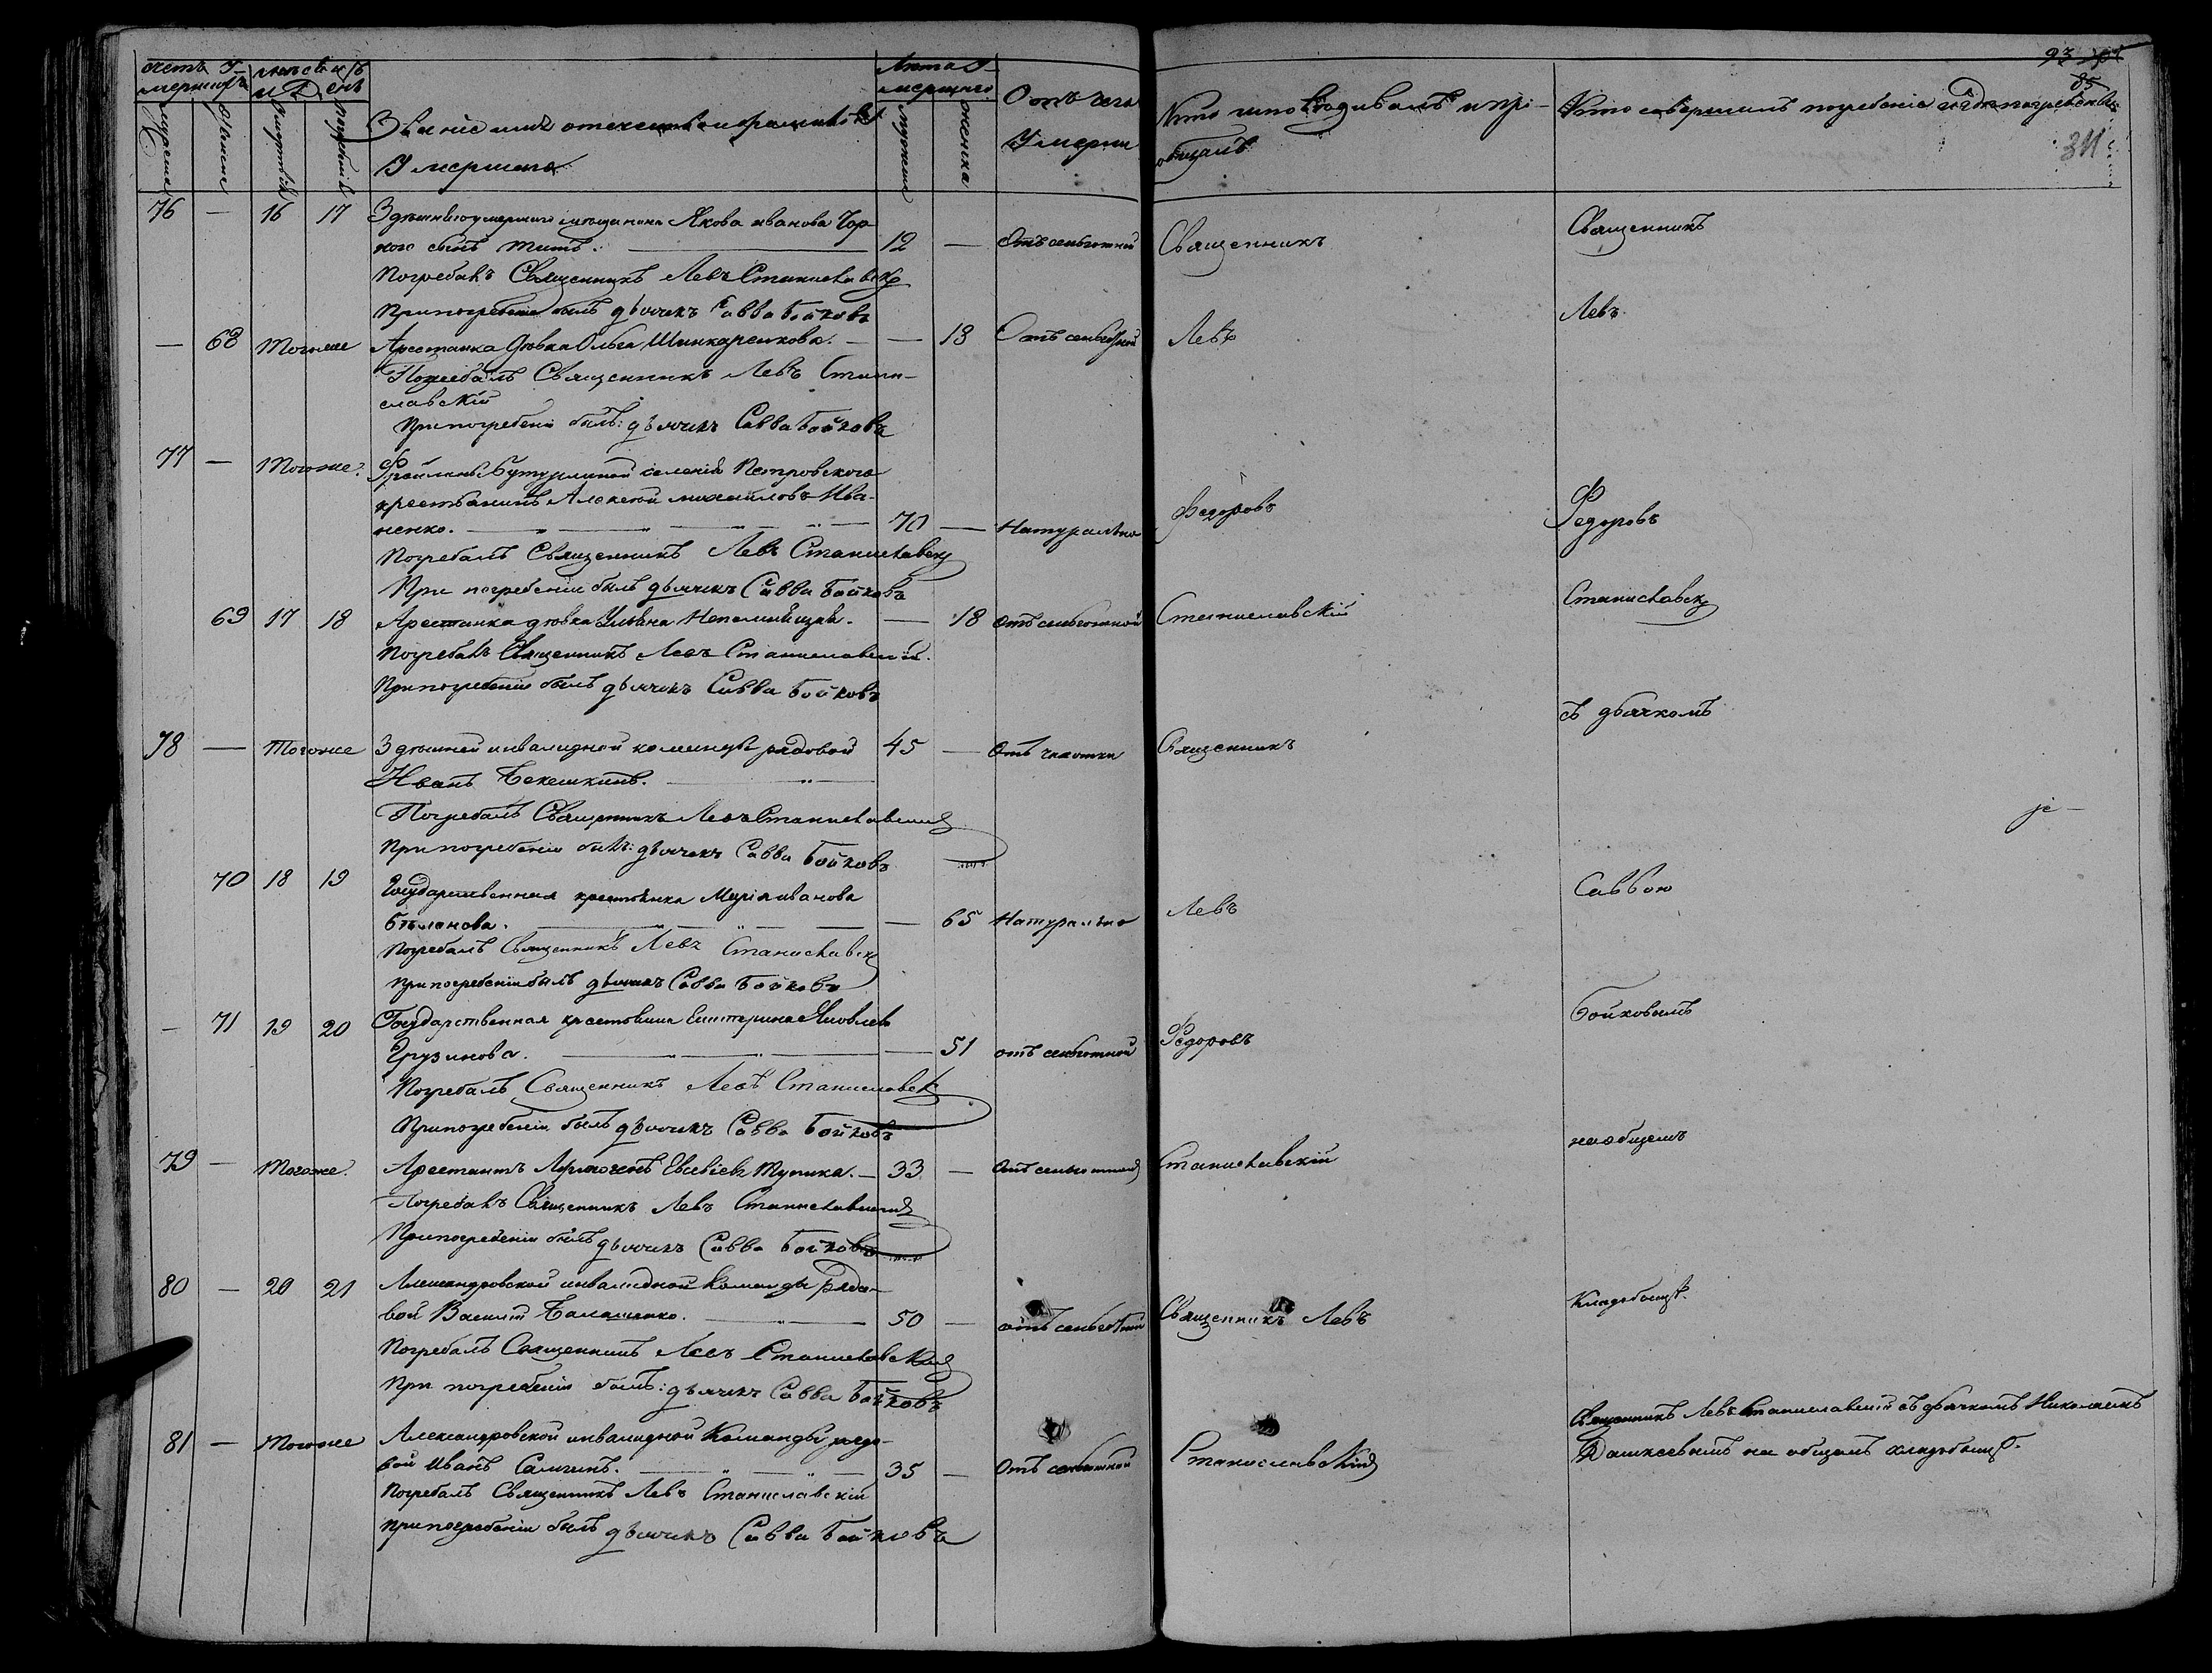 счетъ умершихъ
мужеска
женска
мѣсяцъ и день
смерти
погребенія
Званіе имя отечество и фамилія
Умершаго
Лѣта умершаго
мужеска
женска
Отъ чего
Умерши
Кто исповѣдывалъ и прі-
общалъ
Кто совершилъ погребеніе и гдѣ погребены
93
85
311
76 — 16 17 Здешняго умершаго мещанина Якова Иванова Чор-
ного сынъ Титъ. 12 — Отъ чахотки Священникъ Священникъ
Погребалъ Священникъ Левъ Станиславскій
При погребеніи былъ дьячекъ Савва Бойковъ
Левъ
— 68 Тогоже Арестанка дѣвка Ольга Шинкаренкова. — 18 Левъ
Погребалъ Священникъ Левъ Стани-
славскій
При погребеніи былъ: дьячекъ Савва Бойковъ
77 — Тогоже. Фрейлины Бутурлиной селенія Петровского
крестьянинъ Алексѣй Михайловъ Ива-
ненко. 70 — Натурально Федоровъ Федоровъ
Погребалъ Священникъ Левъ Станиславскій
При погребеніи былъ дьячекъ Савва Бойковъ
69 17 18 Арестанка дѣвка Ульяна — 18 Станиславскій Станиславскій
Погребалъ Священникъ Левъ Станиславскій.
При погребеніи былъ дьячекъ Савва Бойковъ
съ дьячкомъ
78 — Тогоже Здешней инвалидной команды рядовой 45 — Отъ чахотки Священникъ
Иванъ Бекешкинъ.
Погребалъ Священникъ Левъ Станиславскій
При погребеніи былъ: дьячекъ Савва Бойковъ
70 18 19 Государственная крестьянка Марія Иванова
Бѣланова. — 65 Натурально Левъ Саввою
Погребалъ Священникъ Левъ Станиславскій
При погребеніи былъ дьячекъ Савва Бойковъ
— 71 19 20 Государственная крестьянка Екатерина Яковлева
Грузинова. — 51 Федоровъ Бойковымъ
Погребалъ Священникъ Левъ Станиславскій
При погребеніи былъ дьячекъ Савва Бойковъ
на общемъ
79 — Тогоже. Арестантъ Евсевіевъ Тупика. — 33 — Станиславскій
Погребалъ Священникъ Левъ Станиславскій
При погребеніи былъ дьячекъ Савва Бойковъ
80 — 20 21 Александровской инвалидной Команды рядо-
вой Василій 50 — Священникъ Левъ кладбищѣ.
Погребалъ Священникъ Левъ Станиславскій
При погребеніи былъ: дьячекъ Савва Бойковъ
81 — Тогоже Александровской инвалидной Команды рядо-
вой Иванъ 35 — Станиславскій
Священникъ Левъ Станиславскій съ дьячкомъ Николаемъ
Дашкеевымъ на общемъ кладбищѣ.
Погребалъ Священникъ Левъ Станиславскій
При погребеніи былъ дьячекъ Савва Бойковъ